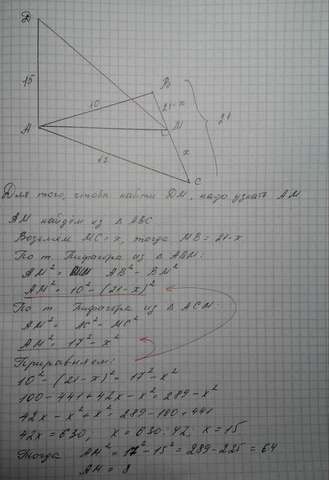 D
15
A
10
B
21-x
M
21
x
17
C
Для того, чтобы найти DM, надо узнать AM.
AM найдём из Δ ABC
Возьмём MC = x, тогда MB = 21-x
По т. Пифагора из Δ ABM:
AM² = AB² - BM²
AM² = 10² - (21-x)²
По т. Пифагора из Δ ACM:
AM² = AC² - MC²
AM² = 17² - x²
Приравняем:
10² - (21-x)² = 17² - x²
100 - 441 + 42x - x² = 289 - x²
42x - x² + x² = 289 - 100 + 441
42x = 630, x = 630:42, x = 15
Тогда AM² = 17² - 15² = 289 - 225 = 64
AM = 8